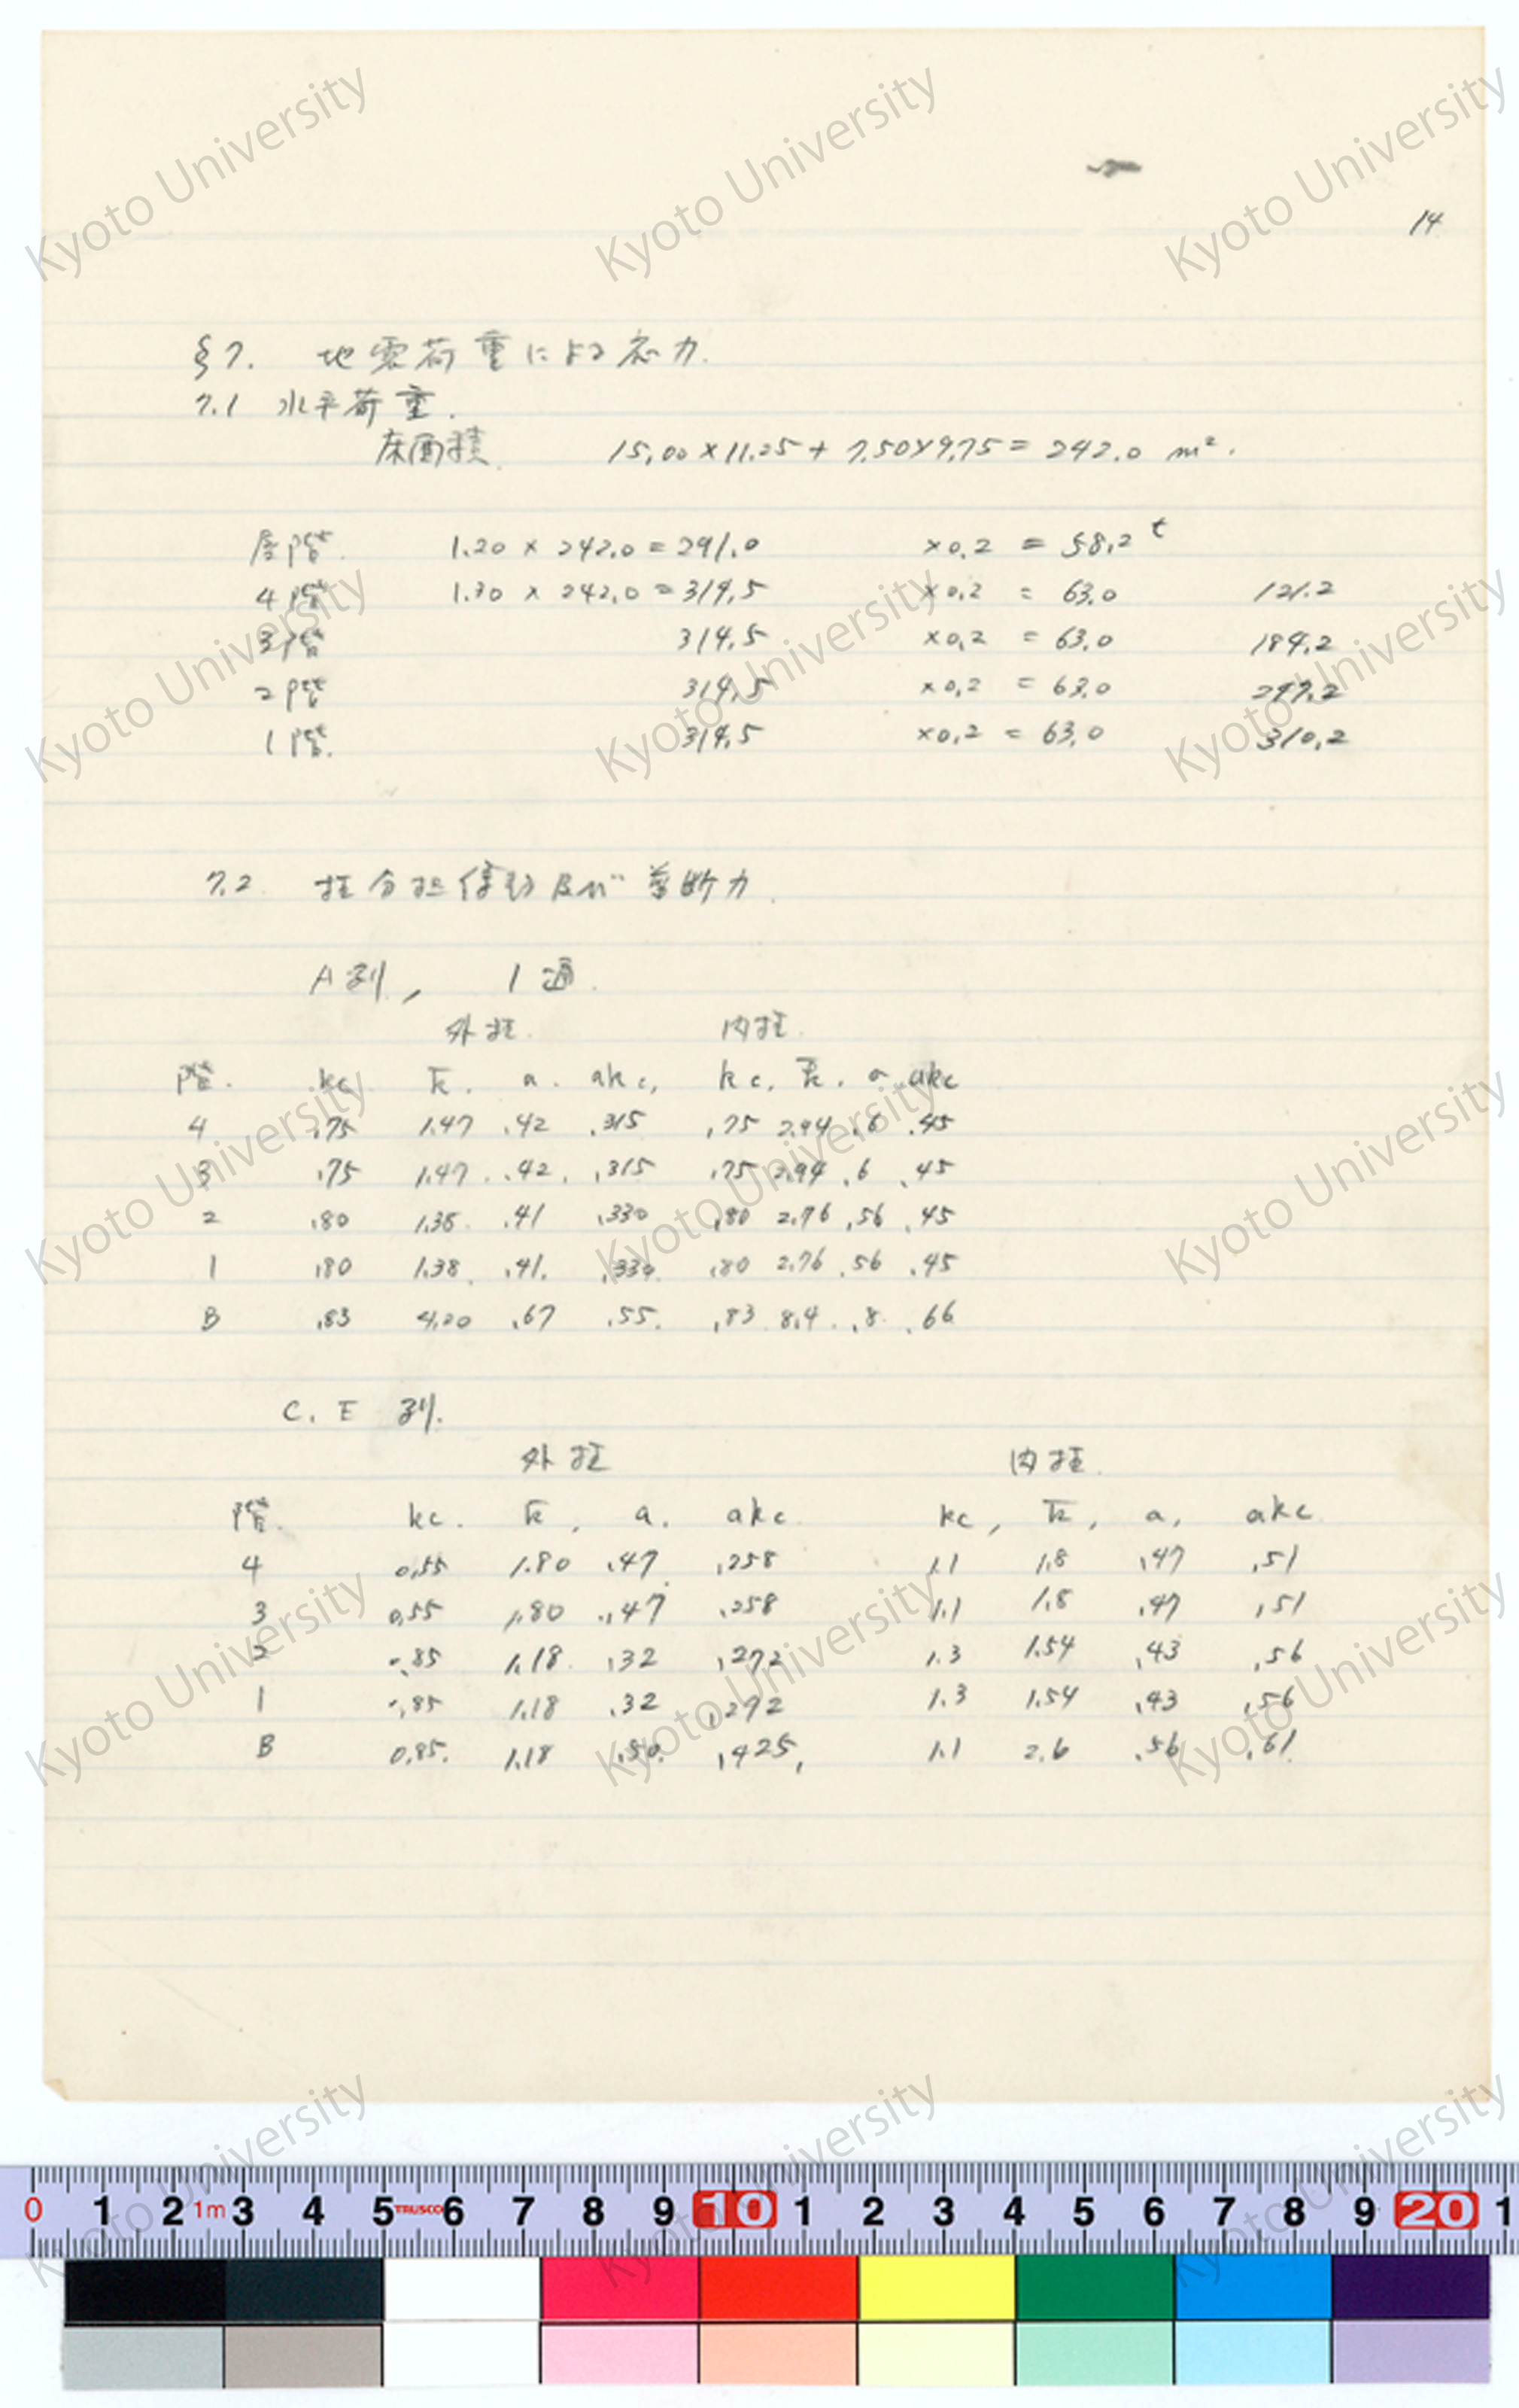 14
§7. 地震荷重による応力.
7.1 水平荷重.
床面積 15.00×11.25+7.50×9.75=242.0 m².
屋階. 1.20 × 242.0=291.0 ×0.2 = 58.2 t
4階 1.30 × 242.0=314.5 ×0.2 = 63.0 121.2
3階 314.5 ×0.2 = 63.0 184.2
2階 314.5 ×0.2 = 63.0 247.2
1階. 314.5 ×0.2 = 63.0 310.2
7.2 柱分担係数及び剪断力.
A列, 1通.
外柱. 内柱.
階. kc k̄. a. akc, kc, k̄. a akc
4 .75 1.47 .42 .315 .75 2.94 .6 .45
3 .75 1.47 .42. .315 .75 2.94 .6 .45
2 .80 1.38 .41 .330 .80 2.76 .56 .45
1 .80 1.38 .41. .330. .80 2.76 .56 .45
B .83 4.20 .67 .55. .83 8.4 .8 .66
C. E 列.
外柱 内柱.
階. kc. k̄, a. akc. kc, k̄, a, akc.
4 0.55 1.80 .47 .258 1.1 1.8 .47 .51
3 0.55 1.80 .47 .258 1.1 1.8 .47 .51
2 .85 1.18 .32 .272 1.3 1.54 .43 .56
1 .85 1.18 .32 .272 1.3 1.54 .43 .56
B 0.85. 1.18 .50. .425, 1.1 2.6 .56 .61.
Kyoto University
0 1 2 1m 3 4 5 TRUSCO 6 7 8 9 10 1 2 3 4 5 6 7 8 9 20 1